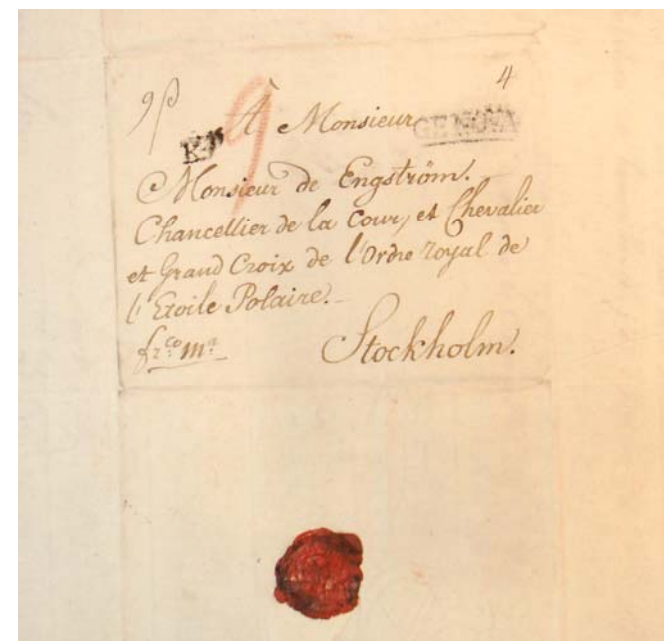 4
9
À Monsieur
GENOVA
Monsieur de Engström.
Chancellier de la Cour, et Chevalier
et Grand Croix de l'Ordre royal de
l'Etoile Polaire.
fr:co Ma:
Stockholm.